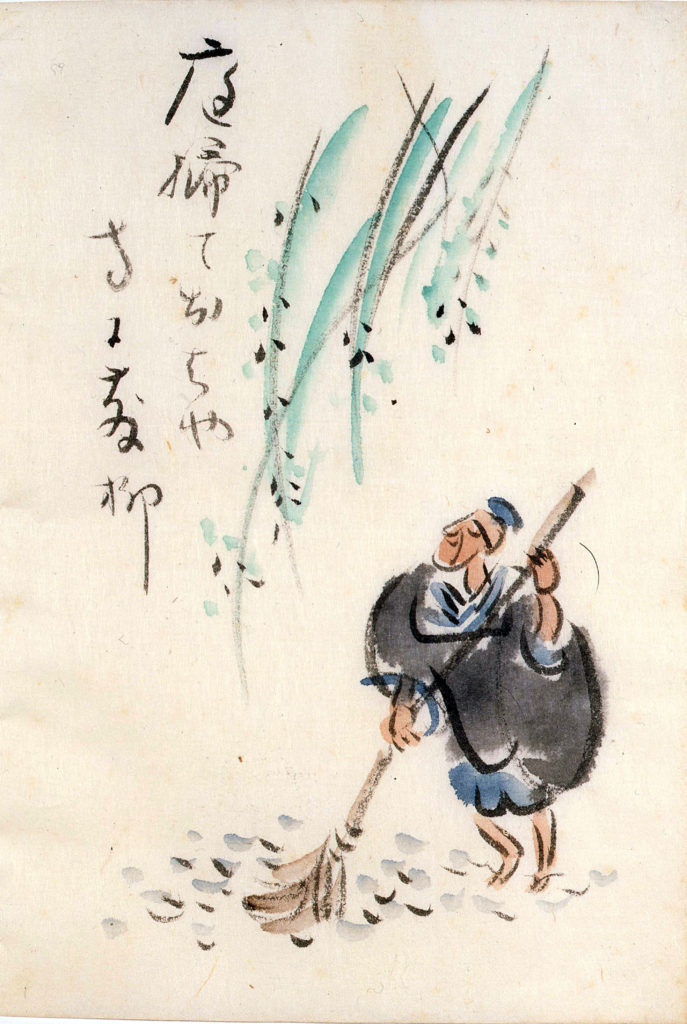 庭掃て出はや
寺に散柳